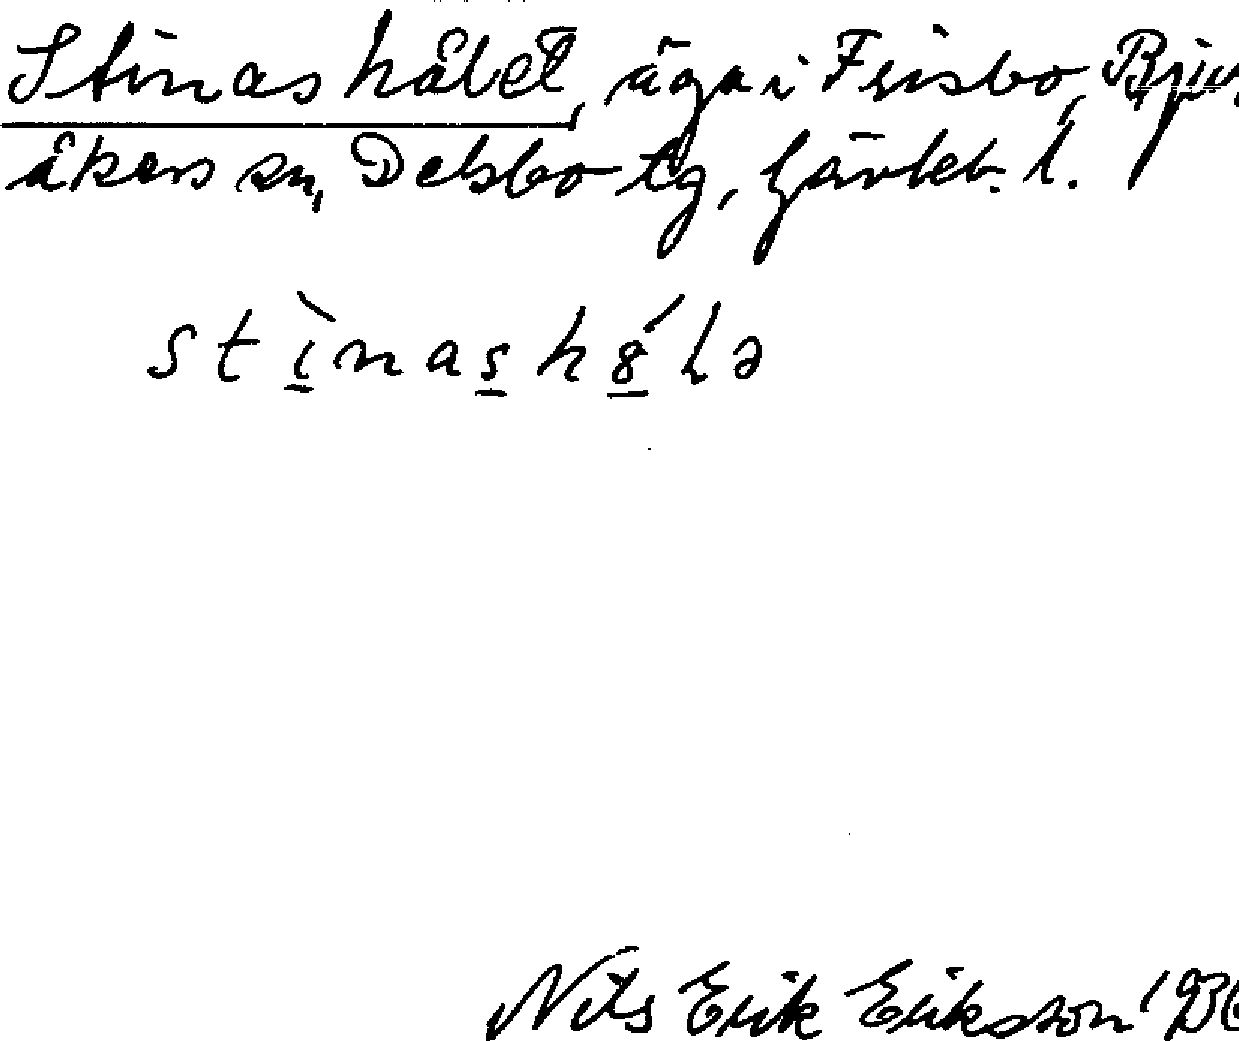 Stinashålet, äga i Frisbo, Bju-
åkers sn, Delsbo tg, Gävleb. l.
stìnashȣ́lə
Nils Erik Eriksson 193